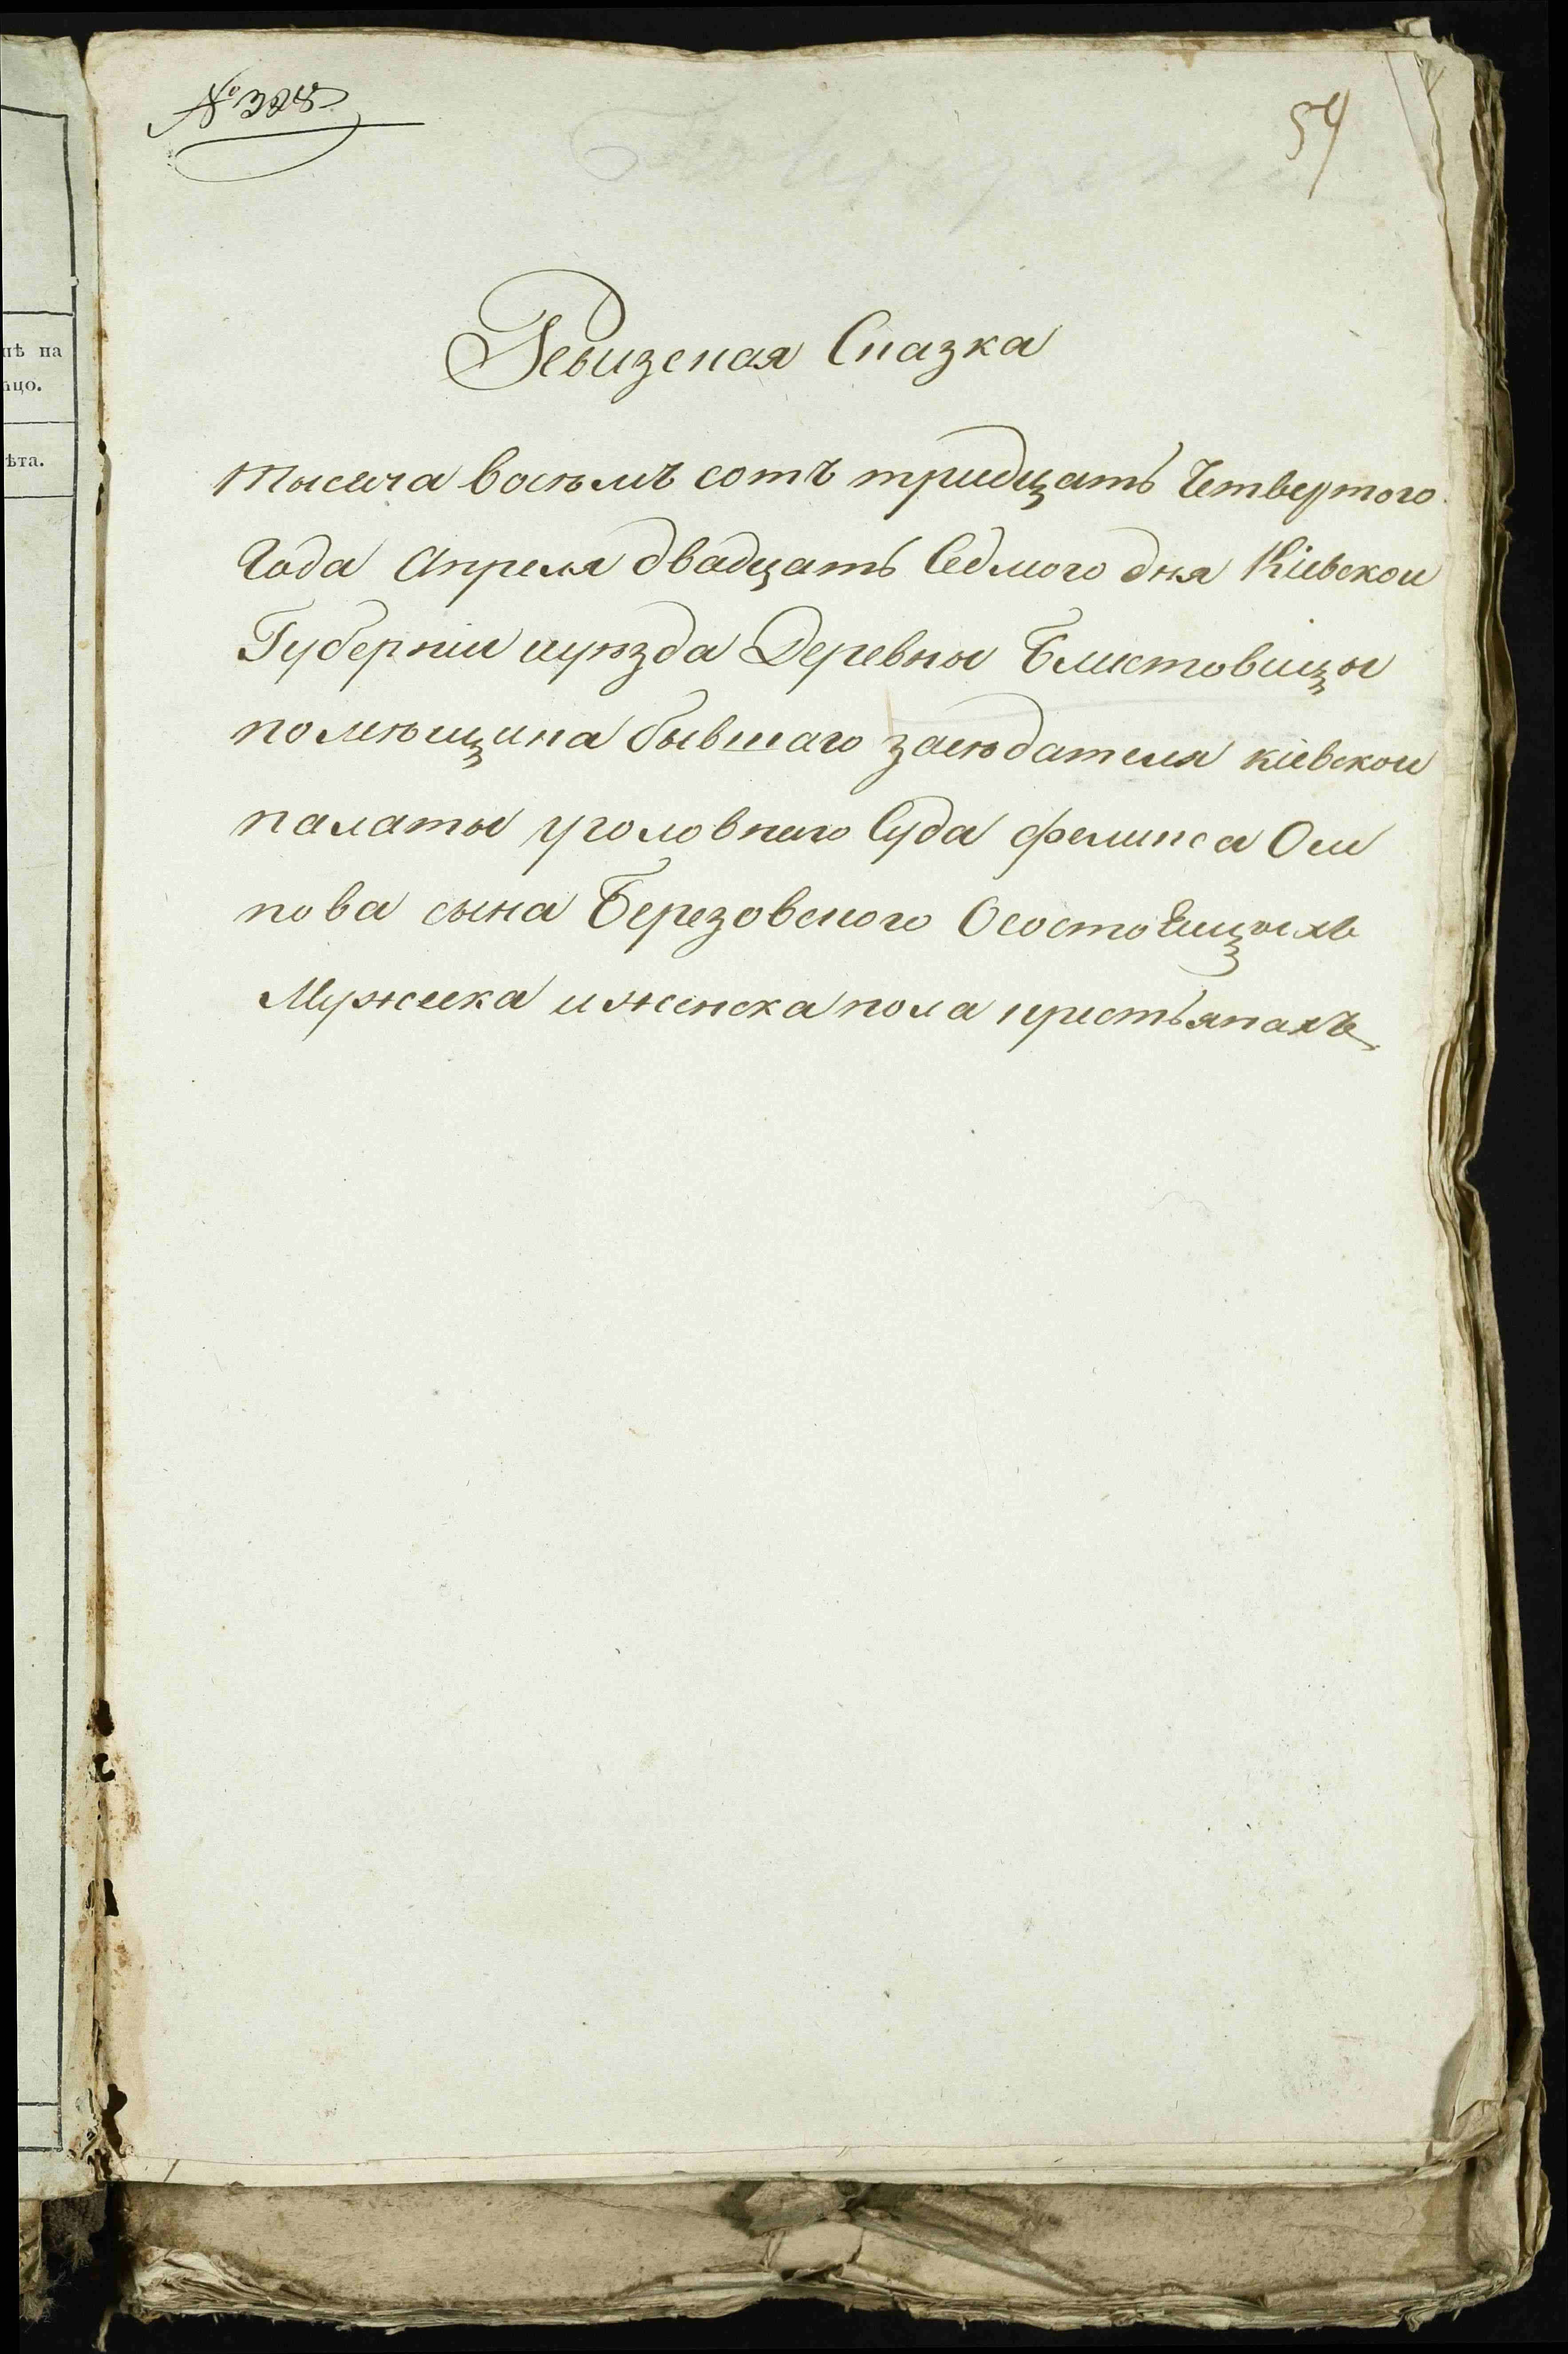 № 328
54
Ревизская Сказка
тысяча восѣмъ сотъ тридцать Четвертого
Года Апреля двадцать Седмого дня Кіевской
Губерніи иуѣзда Деревны Блистовицы
помѣщика бывшаго засѣдателя кіевской
палаты уголовнаго Суда феликса Оси
пова сына Березовского Осостоящыхъ
Мужеска и женска пола крестьянахъ
пѣ на
ицо.
ѣта.